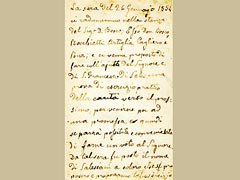 La sera del 26 Gennajo 1854
ci radunammo nella stanza
del Sig. D. Bosco: Esso Don Bosco,
Rocchietti, Artiglia, Cagliero e
Rua; e ci venne proposto di
fare coll'ajuto del Signore e
di S. Francesco di Sales una
prova di esercizio pratico
della carità verso il pros
simo, per venire poi ad
una promessa, e quindi
se parrà possibile e conveniente
di farne un voto al Signore
Da tal sera fu posto il nome
di Salesiani a coloro che si pro
posero e proporranno tal esercizio